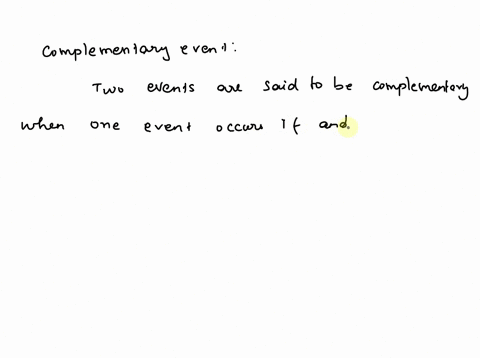 Complementary event:
Two events are said to be complementary
when one event occurs if and